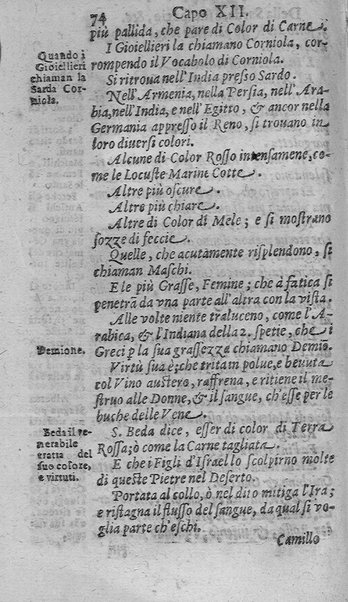 74 Capo XII.
più pallida, che pare di Color di Carne.
I Gioiellieri la chiamano Corniola, cor-
rompendo il Vocabolo di Corniola.
Quando i
Gioiellieri
chiaman la
Sarda Cor-
niola.
Si ritroua nell'India presso Sardo.
Nell'Armenia, nella Persia, nell'Ara-
bia, nell'India, e nell'Egitto, & ancor nella
Germania appresso il Reno, si trouano in
loro diuersi colori.
Alcune di Color Rosso intensamene, co-
me le Locuste Marine Cotte.
Altre più oscure.
Altre più chiare.
Altre di Color di Mele; e si mostrano
sozze di feccie.
Quelle, che acutamente risplendono, si
chiaman Maschi.
E le più Grasse, Femine; che à fatica si
penetra da vna parte all'altra con la vista.
Alle volte niente traluceno, come l'A-
rabica, & l'Indiana della 2. spetie, che i
Greci p la sua grassezza chiamano Demio.
Demione.
Virtù sua è; che trita in polue, e beuuta
col Vino austero, raffrena, e ritiene il me-
struo alle Donne, & il sangue, ch'esse per le
buche delle Vene.
S. Beda dice, esser di color di Terra
Rossa; ò come la Carne tagliata.
Beda il ve-
nerabile
tratta del
suo colore,
e virtuti.
E che i Figli d'Israello scolpirno molte
di queste Pietre nel Deserto.
Portata al collo, ò nel dito mitiga l'Ira;
e ristagna il flusso del sangue, da qual si vo-
glia parte ch'eschi.
Camillo